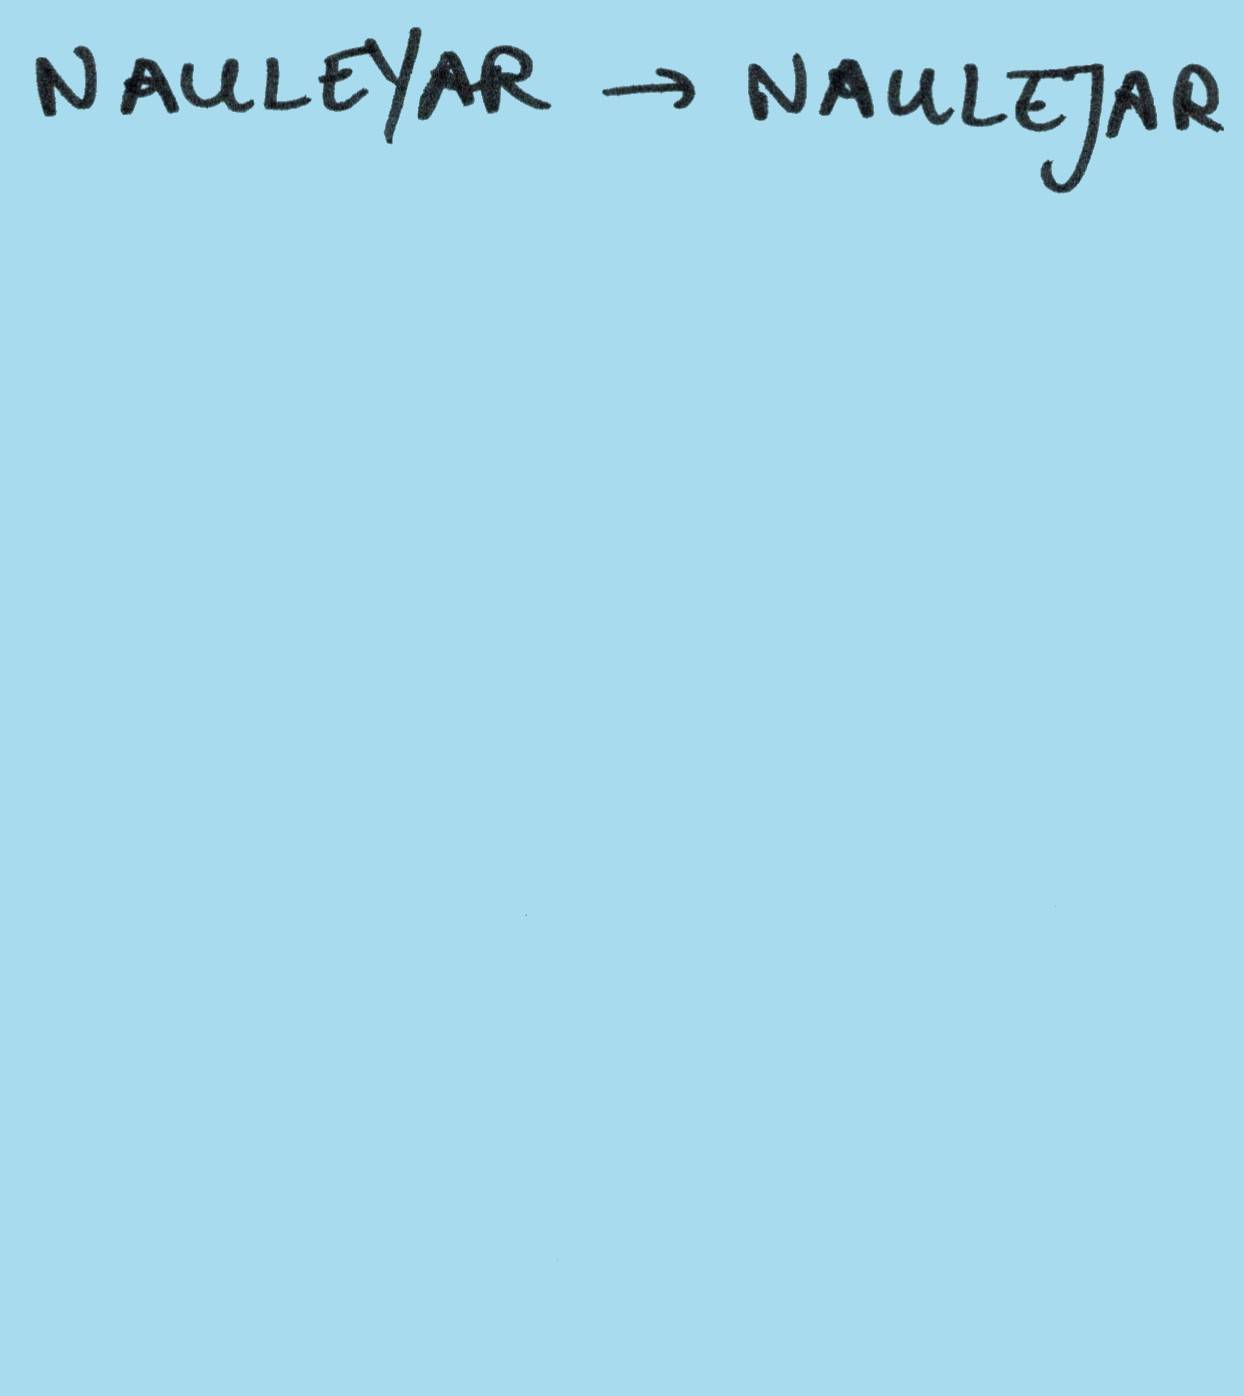 NAULEYAR → NAULEJAR